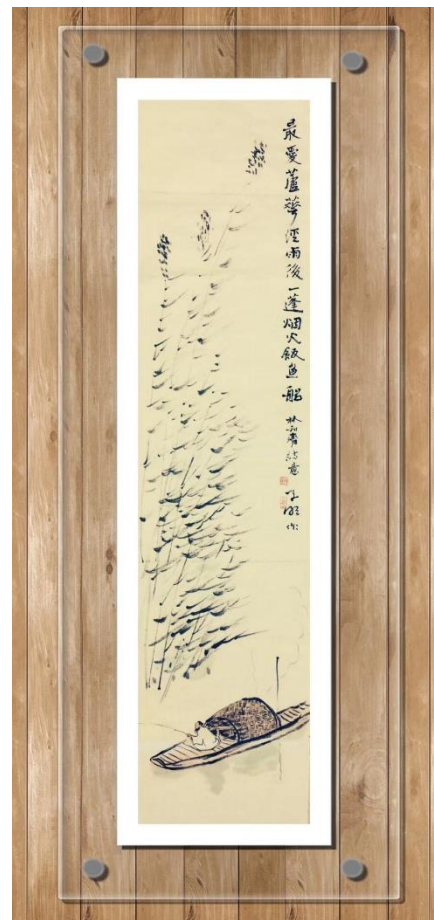 最愛蘆華經雨後一蓬烟火飯魚船 林和靖詩意 子 作